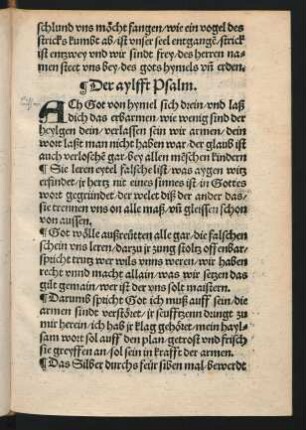 schlund vns möcht fangen/wie ein vogel des
stricks kumbt ab/ist vnser seel entgangē/strick
ist entzwey vnd wir sindt frey/des herren na
men steet vns bey/des gots hymels vñ erden.
¶ Der aylfft Psalm.
ACh Got von hymel sich drein/vnd laß
dich das erbarmen/wie wenig sind der
heylgen dein/verlassen sein wir armen/dein
wort laßt man nicht haben war/der glaub ist
auch verloschē gar/bey allen mēschen kindern
¶ Sie leren eytel falsche list/was aygen witz
erfindet/jr hertz nit eines sinnes ist/in Gottes
wort gegründet/der welet diß der ander das/
sie trennen vns on alle maß/vñ gleissen schon
von aussen.
¶ Got wölle außreütten alle gar/die falschen
schein vns leren/darzu jr zung stoltz offenbar/
spricht trutz wer wils vnns weren/wir haben
recht vnnd macht allain/was wir setzen das
gilt gemain/wer ist der vns solt maistern.
¶ Darumb spricht Got ich muß auff sein/die
armen sindt verstöret/jr seufftzenn dringt zu
mir herein/ich hab jr klag gehöret/mein hayl/
sam wort sol auff den plan/getrost vnd frisch
sie greyffen an/sol sein in krafft der armen.
¶ Das Silber durchs feür siben mal/bewerdt